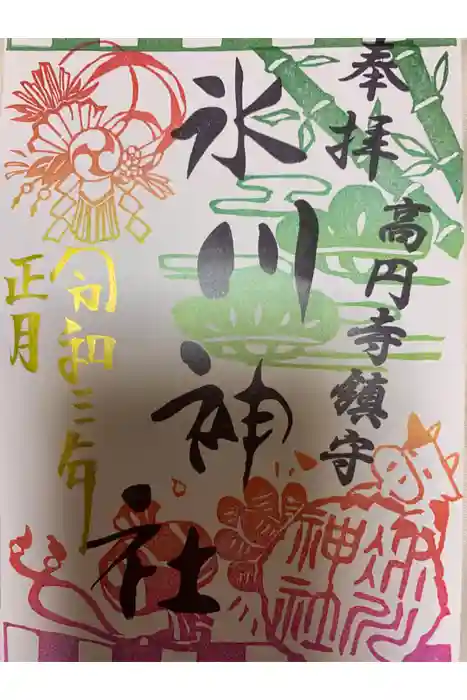 奉拝
高円寺鎮守
氷川神社
令和三年
正月
氷川
神社